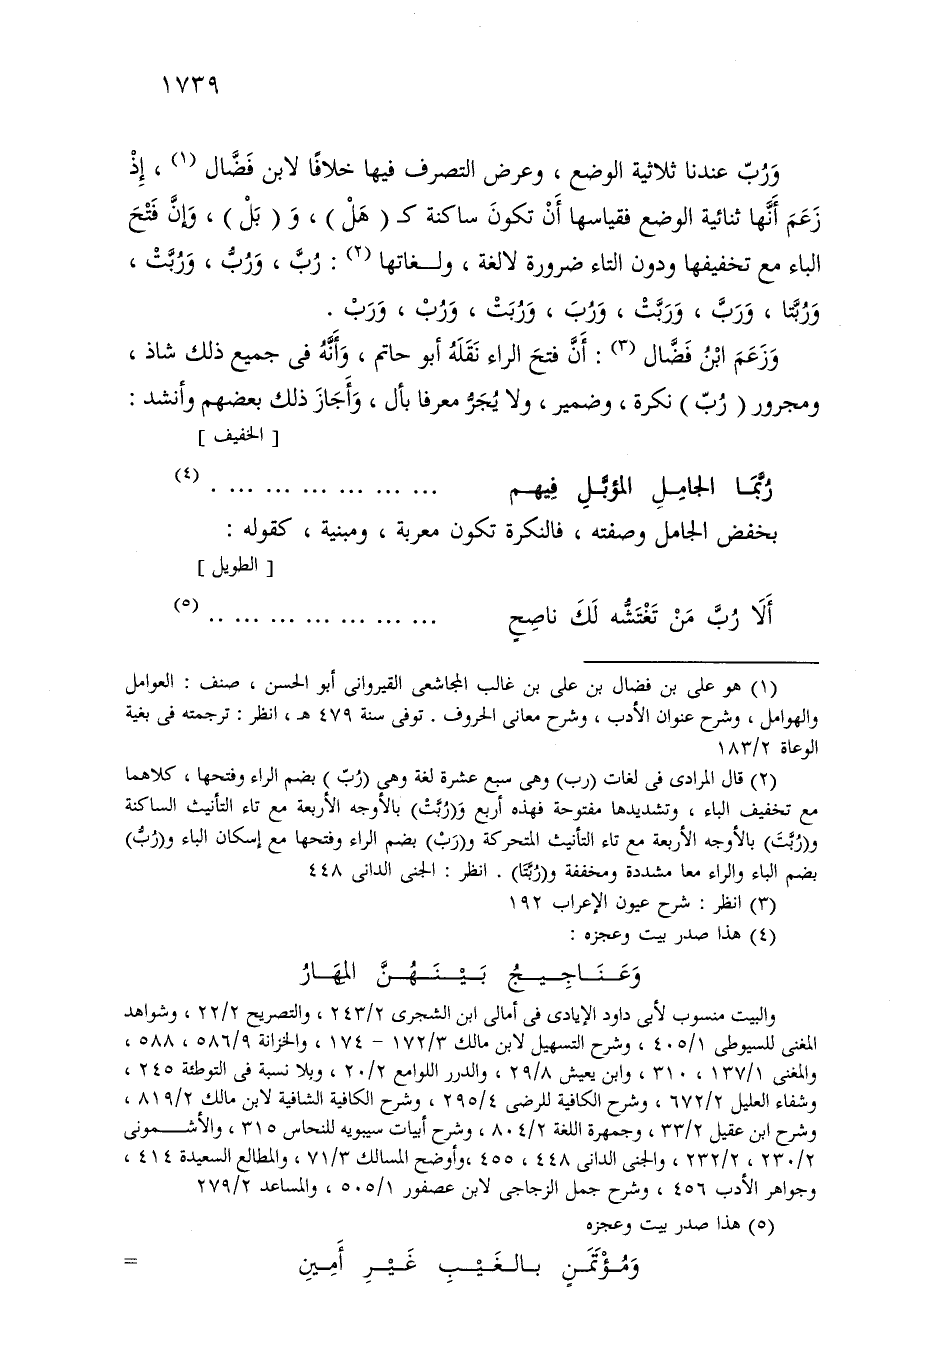 ١٧٣٩
وَرُبّ عندنا ثلاثية الوضع ، وعرض التصرف فيها خلافًا لابن فَضَّال (١) ، إِذْ
زَعَمَ أَنَّها ثنائية الوضع فقياسها أَنْ تكونَ ساكنة كـ ( هَلْ ) ، وَ ( بَلْ ) ، وَإِنَّ فَتْحَ
الباء مع تخفيفها ودون التاء ضرورة لالغة ، ولـغاتها (٢) : رُبَّ ، وَرُبُّ ، وَرُبَّتْ ،
وَرُبَّتا ، وَرَبَّ ، وَرَبَّتْ ، وَرُبَ ، وَرُبَتْ ، وَرُبْ ، وَرَبْ .
وَزَعَمَ ابْنُ فَضَّال (٣) : أَنَّ فتحَ الراء نَقَلَهُ أبو حاتم ، وَأَنَّهُ فى جميع ذلك شاذ ،
ومجرور ( رُبّ ) نكرة ، وضمير ، ولا يُجَرُّ معرفا بأل ، وَأَجَازَ ذلك بعضهم وأنشد :
[ الخفيف ]
رُبَّمَـا الجامِـلِ المؤبَّـلِ فِيهـم ... ... ... ... ... ... ... . (٤)
بخفض الجامل وصفته ، فالنكرة تكون معربة ، ومبنية ، كقوله :
[ الطويل ]
أَلَا رُبَّ مَنْ تَغْتَشُّه لَكَ ناصِحٍ ... ... ... ... ... ... ... .. (٥)
(١) هو على بن فضال بن على بن غالب المجاشعى القيروانى أبو الحسن ، صنف : العوامل
والهوامل ، وشرح عنوان الأدب ، وشرح معانى الحروف . توفى سنة ٤٧٩ هـ ، انظر : ترجمته فى بغية
الوعاة ١٨٣/٢
(٢) قال المرادى فى لغات (رب) وهى سبع عشرة لغة وهى (رُبّ ) بضم الراء وفتحها ، كلاهما
مع تخفيف الباء ، وتشديدها مفتوحة فهذه أربع وَ(رُبَّتْ) بالأوجه الأربعة مع تاء التأنيث الساكنة
و(رُبَّتَ) بالأوجه الأربعة مع تاء التأنيث المتحركة و(رَبْ) بضم الراء وفتحها مع إسكان الباء و(رُبُّ)
بضم الباء والراء معا مشددة ومخففة و(رُبَّتَا) . انظر : الجنى الدانى ٤٤٨
(٣) انظر : شرح عيون الإعراب ١٩٢
(٤) هذا صدر بيت وعجزه :
وَعَـنَـاجِـيـجُ بَـيْـنَـهُـنَّ المِهَـارُ
والبيت منسوب لأبى داود الإيادى فى أمالى ابن الشجرى ٢٤٣/٢ ، والتصريح ٢٢/٢ ، وشواهد
المغنى للسيوطى ٤٠٥/١ ، وشرح التسهيل لابن مالك ١٧٢/٣ – ١٧٤ ، والخزانة ٥٨٦/٩ ، ٥٨٨ ،
والمغنى ١٣٧/١ ، ٣١٠ ، وابن يعيش ٢٩/٨ ، والدرر اللوامع ٢٠/٢ ، وبلا نسبة فى التوطئة ٢٤٥ ،
وشفاء العليل ٦٧٢/٢ ، وشرح الكافية للرضى ٢٩٥/٤ ، وشرح الكافية الشافية لابن مالك ٨١٩/٢ ،
وشرح ابن عقيل ٣٣/٢ ، وجمهرة اللغة ٨٠٤/٢ ، وشرح أبيات سيبويه للنحاس ٣١٥ ، والأشـــمونى
٢٣٠/٢ ، ٢٣٢/٢ ، والجنى الدانى ٤٤٨ ، ٤٥٥ ،وأوضح المسالك ٧١/٣ ، والمطالع السعيدة ٤١٤ ،
وجواهر الأدب ٤٥٦ ، وشرح جمل الزجاجى لابن عصفور ٥٠٥/١ ، والمساعد ٢٧٩/٢
(٥) هذا صدر بيت وعجزه
وَمُـؤْتَمَـنٍ بـالـغَـيْـبِ غَـيْـرِ أَمِـينِ =